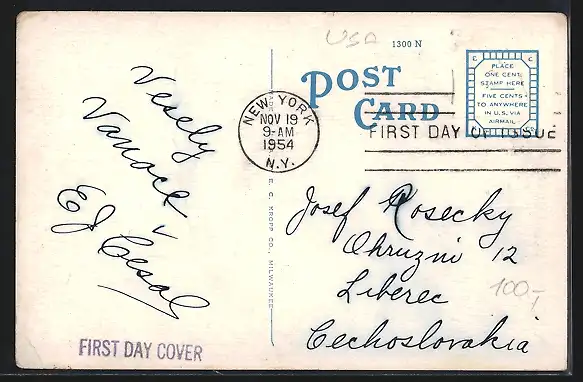 USA
1300 N
POST CARD
PLACE
ONE CENT
STAMP HERE
FIVE CENTS
TO ANYWHERE
IN U.S. VIA
AIRMAIL
NEW YORK
NOV 19
9-AM
1954
N.Y.
FIRST DAY OF ISSUE
Vesely
Vanoce
EJ Cesal
E. C. KROPP CO., MILWAUKEE
Josef Rosecky
Okruzni 12
Liberec
Cechoslovakia
100,-
FIRST DAY COVER